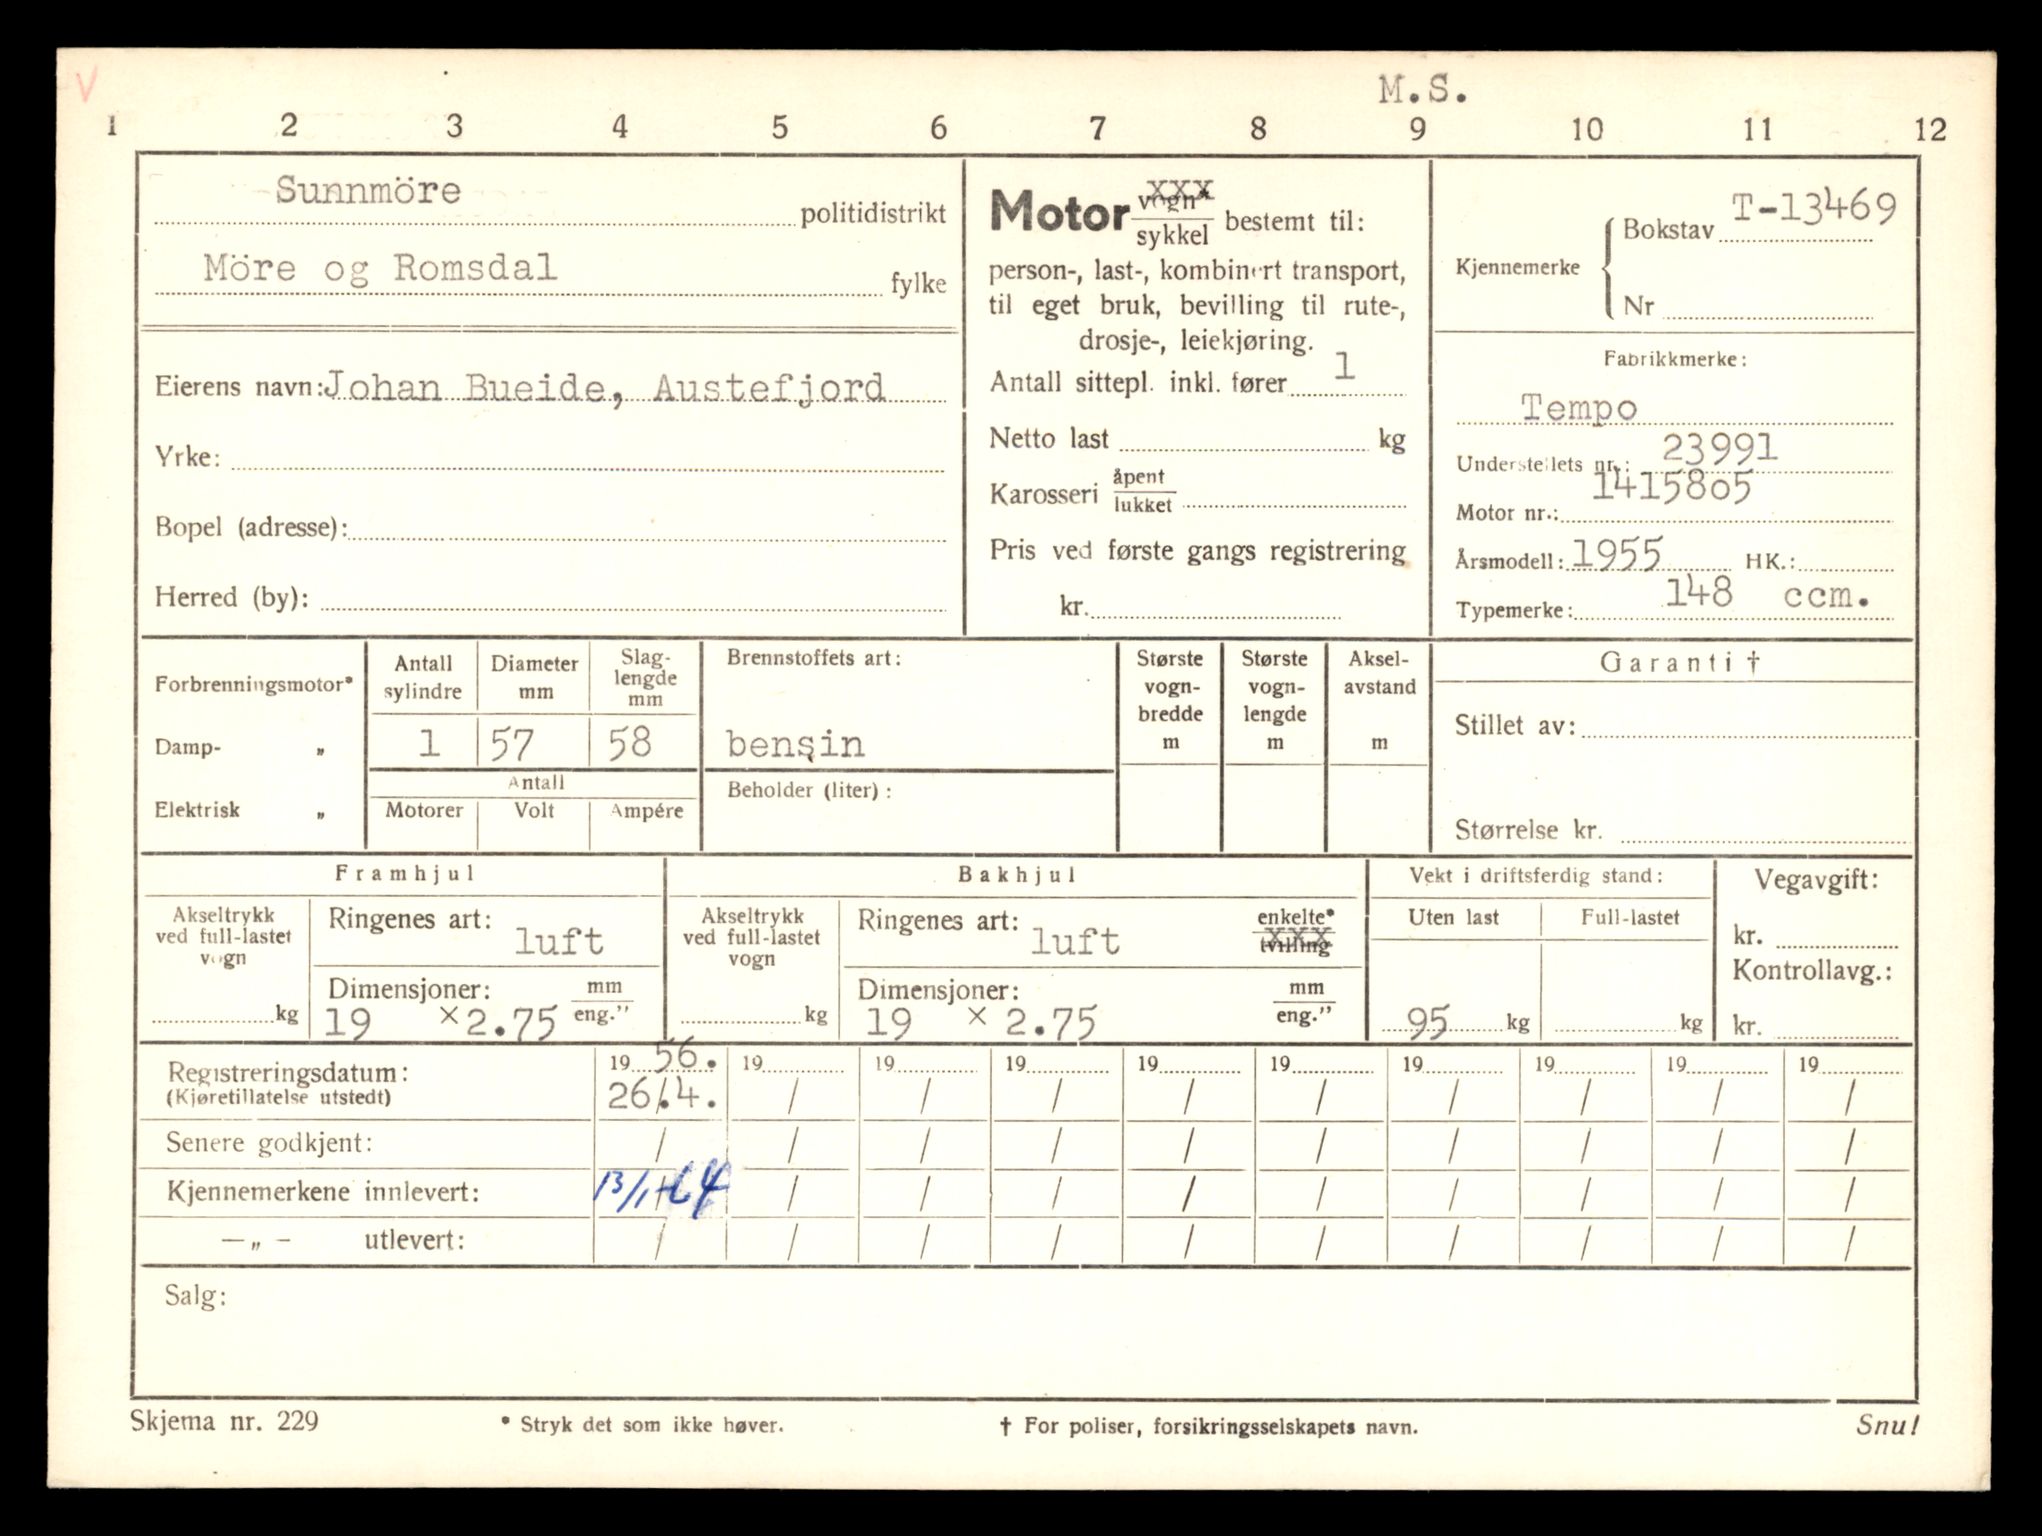 V
M.S.
1 2 3 4 5 6 7 8 9 10 11 12
Sunnmöre politidistrikt
Möre og Romsdal fylke
Eierens navn: Johan Bueide, Austefjord
Yrke:
Bopel (adresse):
Herred (by):
Motor vogn* xxx / sykkel bestemt til:
person-, last-, kombinert transport,
til eget bruk, bevilling til rute-,
drosje-, leiekjøring.
Antall sittepl. inkl. fører 1
Netto last kg
Karosseri åpent / lukket
Pris ved første gangs registrering
kr.
Kjennemerke
Bokstav T-13469
Nr
Fabrikkmerke:
Tempo
Understellets nr.: 23991
1415805
Motor nr.:
Årsmodell: 1955 HK.:
Typemerke: 148 ccm.
Forbrenningsmotor*
Damp- „
Elektrisk „
Antall sylindre
Diameter mm
Slag-lengde mm
1 57 58
Antall
Motorer Volt Ampére
Brennstoffets art:
bensin
Beholder (liter):
Største vogn-bredde m
Største vogn-lengde m
Aksel-avstand m
Garanti †
Stillet av:
Størrelse kr.
Framhjul
Akseltrykk ved full-lastet vogn
kg
Ringenes art:
luft
Dimensjoner: mm / eng.”
19 × 2.75
Bakhjul
Akseltrykk ved full-lastet vogn
kg
Ringenes art:
luft
enkelte*
tvilling xxx
Dimensjoner: mm / eng.”
19 × 2.75
Vekt i driftsferdig stand:
Uten last Full-lastet
95 kg kg
Vegavgift:
kr.
Kontrollavg.:
kr.
Registreringsdatum: 19 56. 19 19 19 19 19 19 19 19 19
(Kjøretillatelse utstedt) 26/.4. / / / / / / / / /
Senere godkjent: / / / / / / / / / /
Kjennemerkene innlevert: 13/1-64 / / / / / / / / /
— „ — utlevert: / / / / / / / / / /
Salg:
Skjema nr. 229 * Stryk det som ikke høver. † For poliser, forsikringsselskapets navn. Snu!